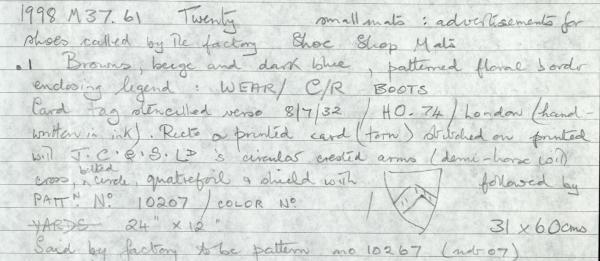 1998 M37.61 Twenty small mats : advertisements for
shoes called by the factory Shoe Shop Mats
.1 Browns, beige and dark blue, patterned floral border
enclosing legend : WEAR/ C/R BOOTS
Card tag stencilled verso 8/7/32 / HO.74 / London (hand-
written in ink). Recto a printed card (torn) stitched on printed
with J.C.&.S.LD's circular crested arms (demi-horse with
cross, belted circle, quatrefoil & shield with followed by
PATTN No 10207 / COLOR No /
YARDS 24" x 12" 31 x 60cms
Said by factory to be pattern no 10267 (not 07)